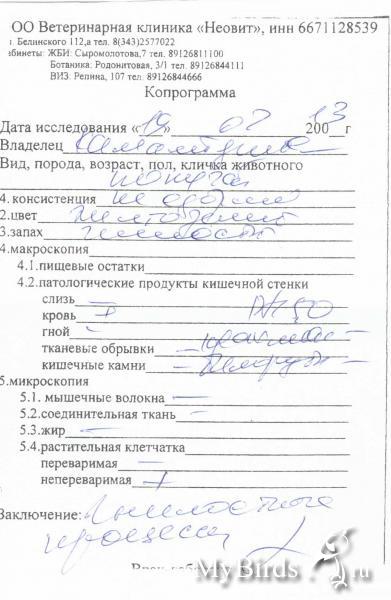 ОО Ветеринарная клиника «Неовит», инн 6671128539
г. Белинского 112,а тел. 8(343)2577022
абинеты: ЖБИ: Сыромолотова,7 тел. 89126811100
Ботаника: Родонитовая, 3/1 тел. 89126844111
ВИЗ: Репина, 107 тел: 89126844666
Копрограмма
Дата исследования «19» 07 200 13 г
Владелец
Вид, порода, возраст, пол, кличка животного
попугай
4. консистенция
2.цвет
3.запах гнилостн
4.макроскопия
4.1.пищевые остатки
4.2.патологические продукты кишечной стенки
слизь –
кровь +
гной –
тканевые обрывки –
кишечные камни –
5.микроскопия
5.1. мышечные волокна –
5.2.соединительная ткань –
5.3.жир –
5.4.растительная клетчатка
переваримая –
непереваримая +
Заключение: Гнилостные
процессы
MyBirds.ru